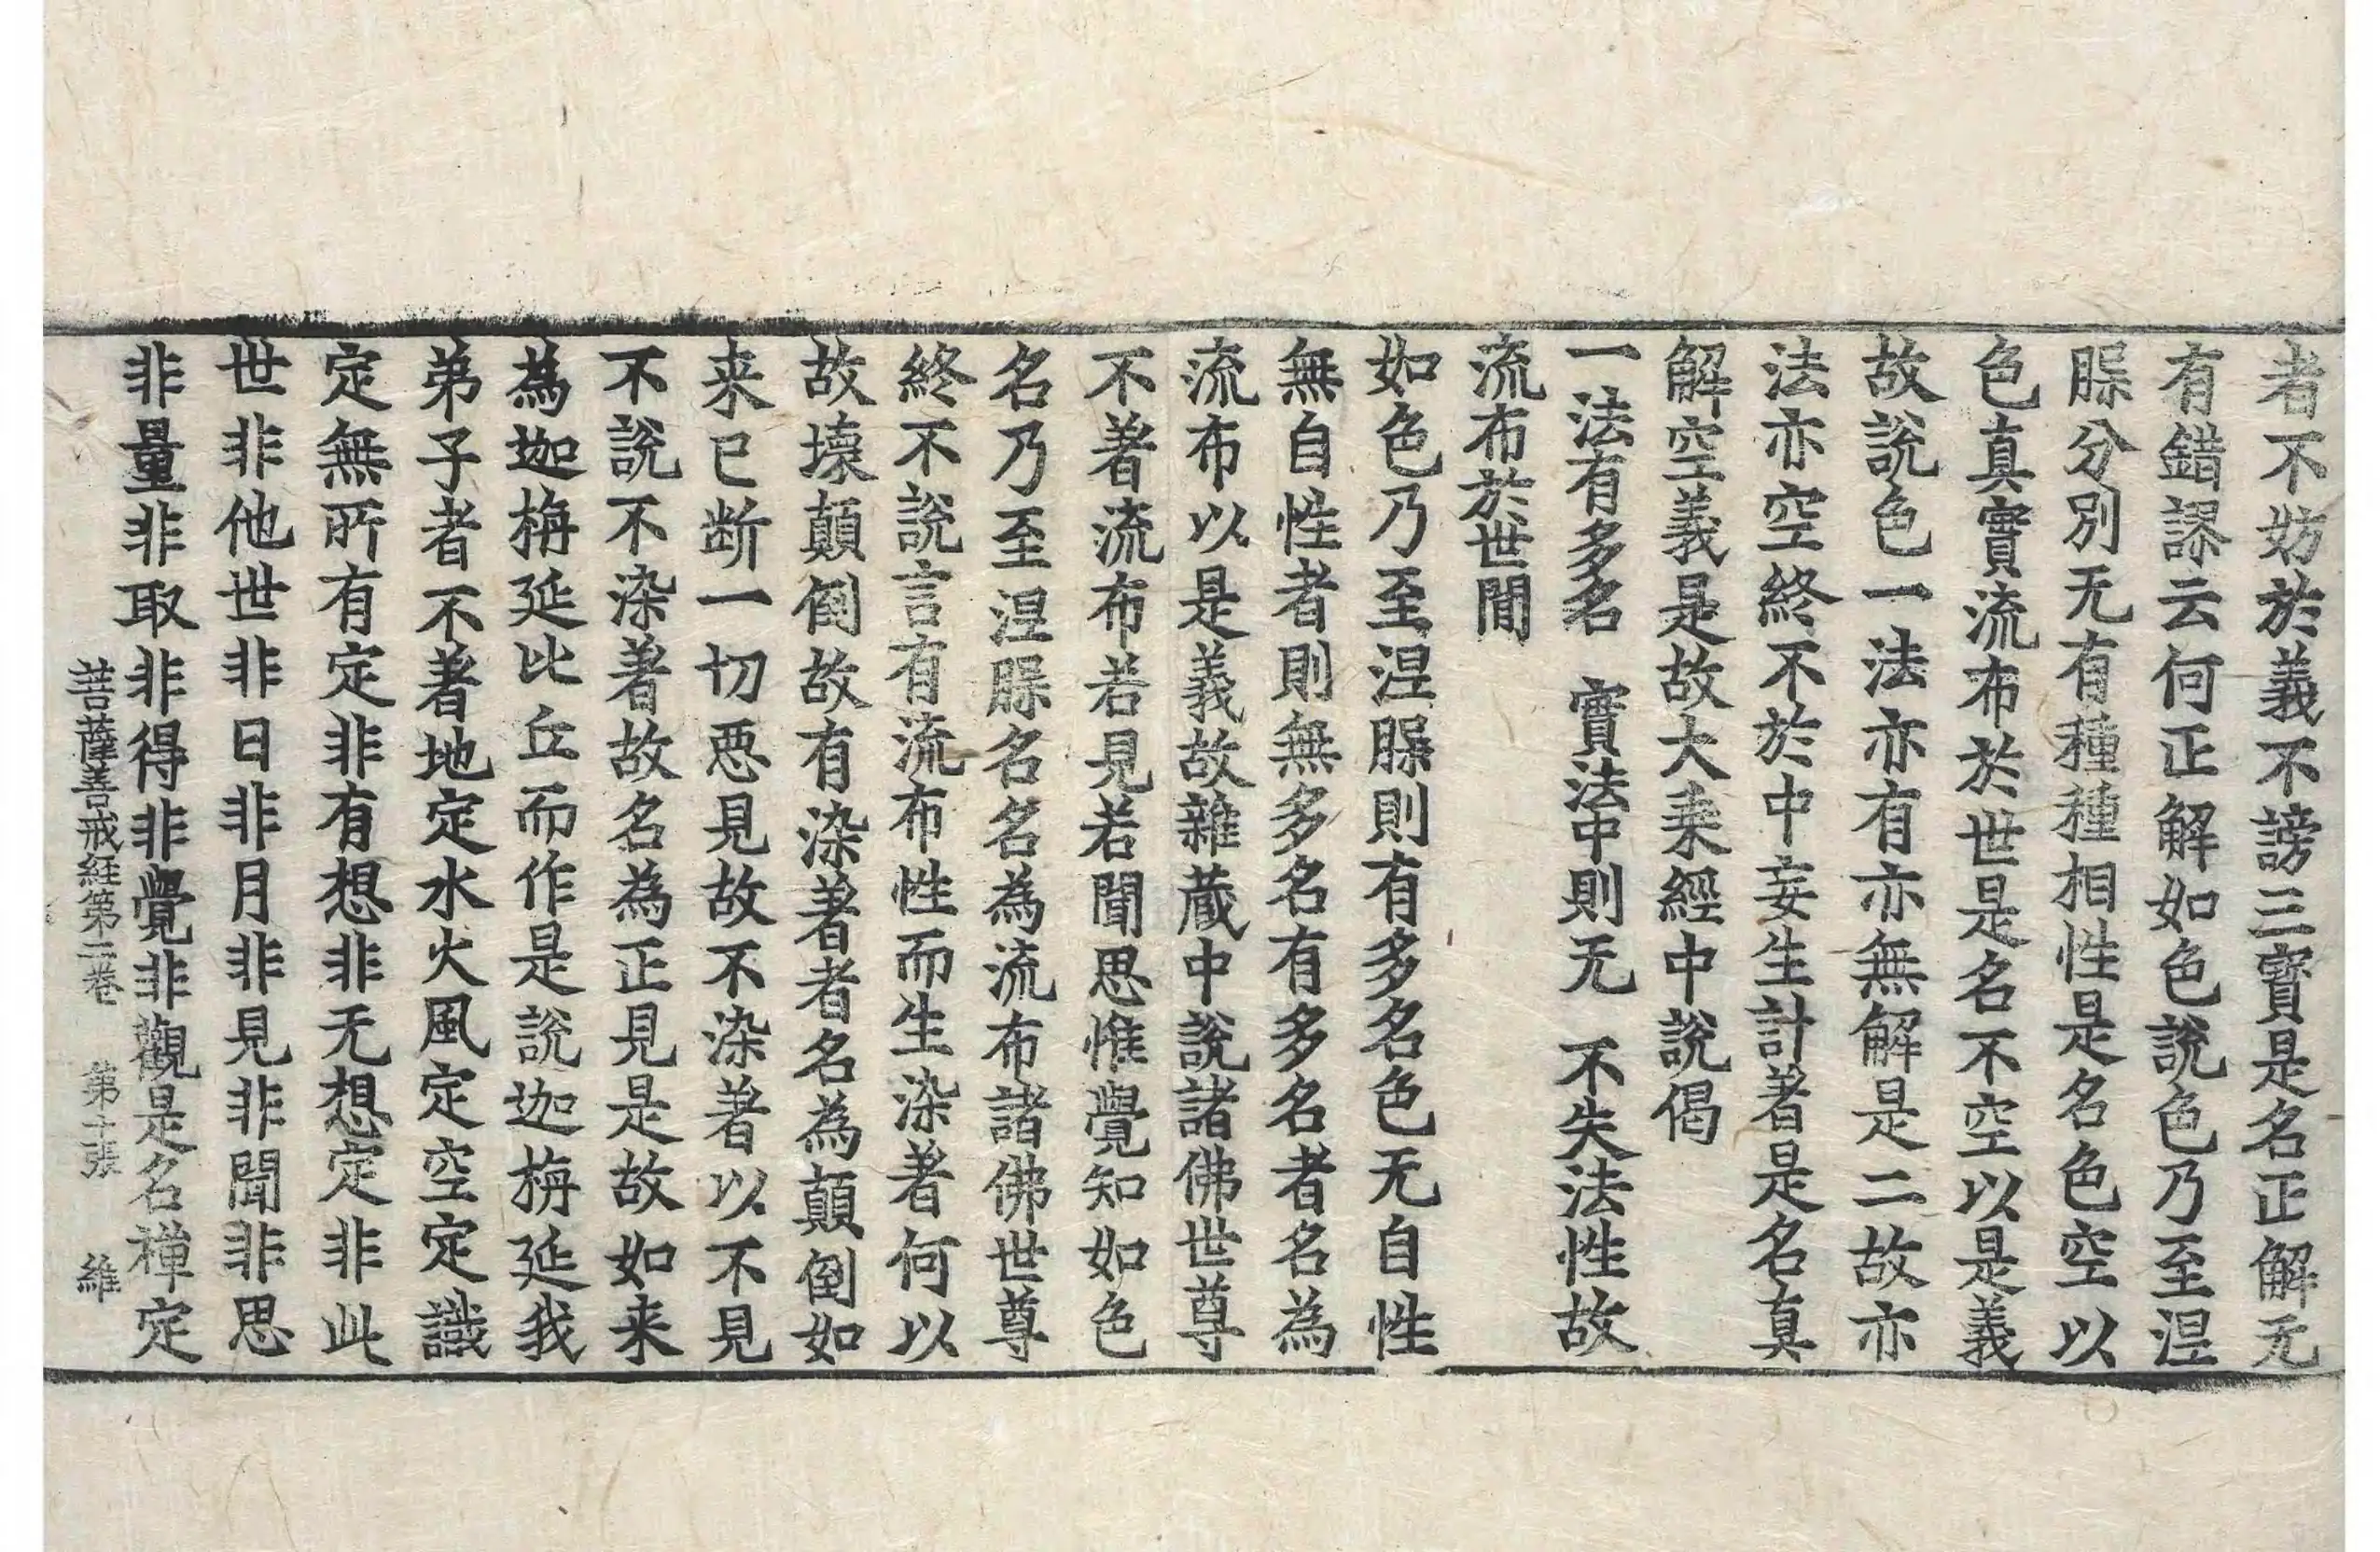 者不妨於義不謗三寶是名正解无
有錯謬云何正解如色說色乃至涅
縣分別无有種種相性是名色空以
色真實流布於世是名不空以是義
故說色一法亦有亦無解是二故亦
法亦空終不於中妄生計著是名真
解空義是故大乗經中說偈
一法有多名　實法中則无　不失法性故
流布於世間
如色乃至涅縣則有多名色无自性
無自性者則無多名有多名者名為
流布以是義故雜蔵中說諸佛世尊
不著流布若見若聞思惟覺知如色
名乃至涅縣名名為流布諸佛世尊
終不說言有流布性而生染著何以
故壞顛倒故有染著者名為顛倒如
来已断一切惡見故不染著以不見
不說不染著故名為正見是故如来
為迦栴延比丘而作是說迦栴延我
弟子者不著地定水火風定空定識
定無所有定非有想非无想定非此
世非他世非日非月非見非聞非思
非量非取非得非覺非觀是名禅定
菩薩善戒経第二卷　第十張　維